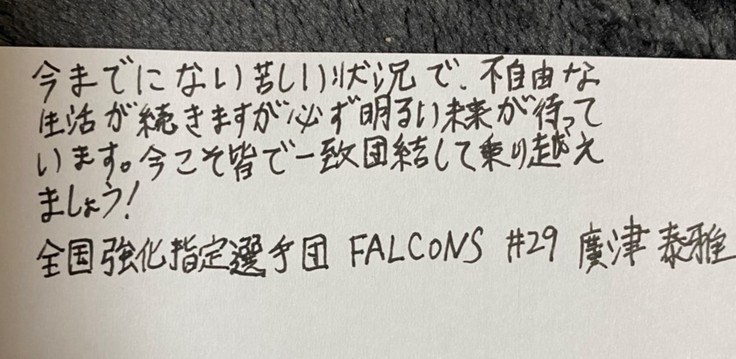 今までにない苦しい状況で、不自由な
生活が続きますが必ず明るい未来が待って
います。今こそ皆で一致団結して乗り越え
ましょう!
全国強化指定選手団 FALCONS #29 廣津 泰雅